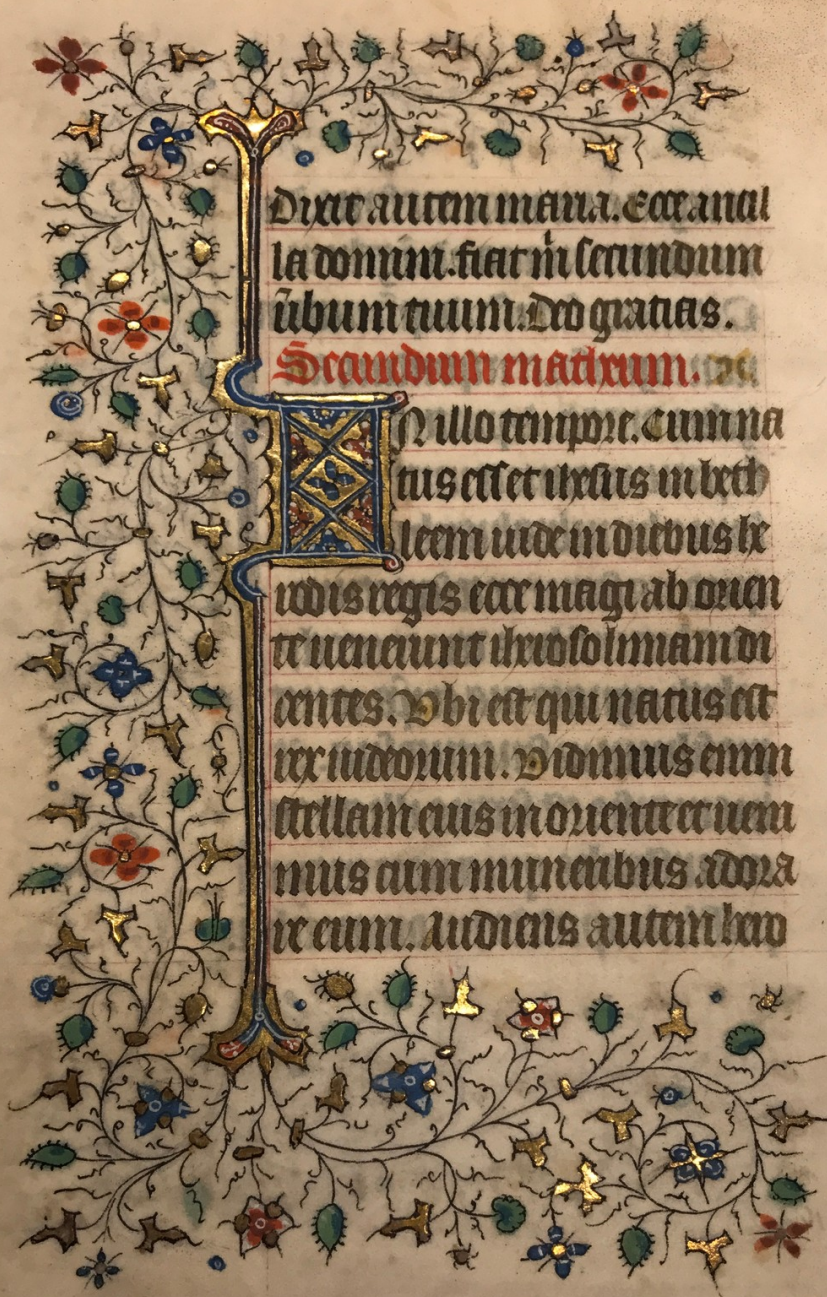 Dixit autem maria. Ecce ancil
la domini. fiat m̄ secundum
ūbum tuum. Deo gratias.
Secundum matheum.
IN illo tempore. Cum na
tus esset ihesus in beth
leem iude in diebus he
rodis regis ecce magi ab orien
te uenerunt iherosolimam di
centes. Vbi est qui natus est
rex iudeorum. Vidimus enim
stellam eius in oriente et ueni
mus cum muneribus adora
re eum. Audiens autem hero